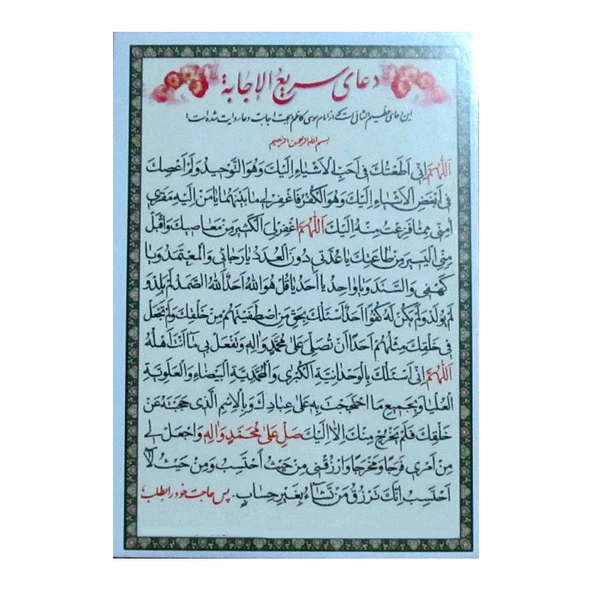 دعای سریع الإجابة
این دعای عظیم الشانی است که از امام موسی کاظم بجهت اجابت دعا روایت شده است:
بسم الله الرحمن الرحیم
اَللّهُمَّ اِنّی اَطَعْتُكَ فی اَحَبِّ الْاَشْیاءِ اِلَیْكَ وَهُوَ التَّوْحیدُ وَلَمْ اَعْصِكَ
فی اَبْغَضِ الْاَشْیاءِ اِلَیْكَ وَهُوَ الْكُفْرُ فَاغْفِرْ لی ما بَیْنَهُما یا مَنْ اِلَیْهِ مَفَرّی
امِنّی مِمّا فَزِعْتُ مِنْهُ اِلَیْكَ اَللّهُمَّ اغْفِرْ لِیَ الْكَثیرَ مِنْ مَعاصیكَ وَاقْبَلْ
مِنِّی الْیَسیرَ مِنْ طاعَتِكَ یا عُدَّتی دُونَ الْعُدَدِ یا رَجائی وَالْمُعْتَمَدُ وَیا
كَهْفی وَالسَّنَدُ وَیا واحِدُ یا اَحَدُ یا قُلْ هُوَ اللهُ اَحَدٌ اَللهُ الصَّمَدُ لَمْ یَلِدْ وَ
لَمْ یُولَدْ وَلَمْ یَكُنْ لَهُ كُفُوًا اَحَدٌ اَسْئَلُكَ بِحَقِّ مَنِ اصْطَفَیْتَهُمْ مِنْ خَلْقِكَ وَلَمْ تَجْعَلْ
فی خَلْقِكَ مِثْلَهُمْ اَحَدًا اَنْ تُصَلِّیَ عَلی مُحَمَّدٍ وَالِهِ وَتَفْعَلَ بی ما اَنْتَ اَهْلُهُ
اَللّهُمَّ اِنّی اَسْئَلُكَ بِالْوَحْدانِیَّةِ الْكُبْری وَالْمُحَمَّدِیَّةِ الْبَیْضاءِ وَالْعَلَوِیَّةِ
الْعُلْیا وَبِجَمیعِ مَا احْتَجَجْتَ بِهِ عَلی عِبادِكَ وَبِالْاِسْمِ الَّذی حَجَبْتَهُ عَنْ
خَلْقِكَ فَلَمْ یَخْرُجْ مِنْكَ اِلّا اِلَیْكَ صَلِّ عَلی مُحَمَّدٍ وَالِهِ وَاجْعَلْ لی
مِنْ اَمْری فَرَجًا وَمَخْرَجًا وَارْزُقْنی مِنْ حَیْثُ اَحْتَسِبُ وَمِنْ حَیْثُ لا
اَحْتَسِبُ اِنَّكَ تَرْزُقُ مَنْ تَشاءُ بِغَیْرِ حِسابٍ. پس حاجت خود را بطلب